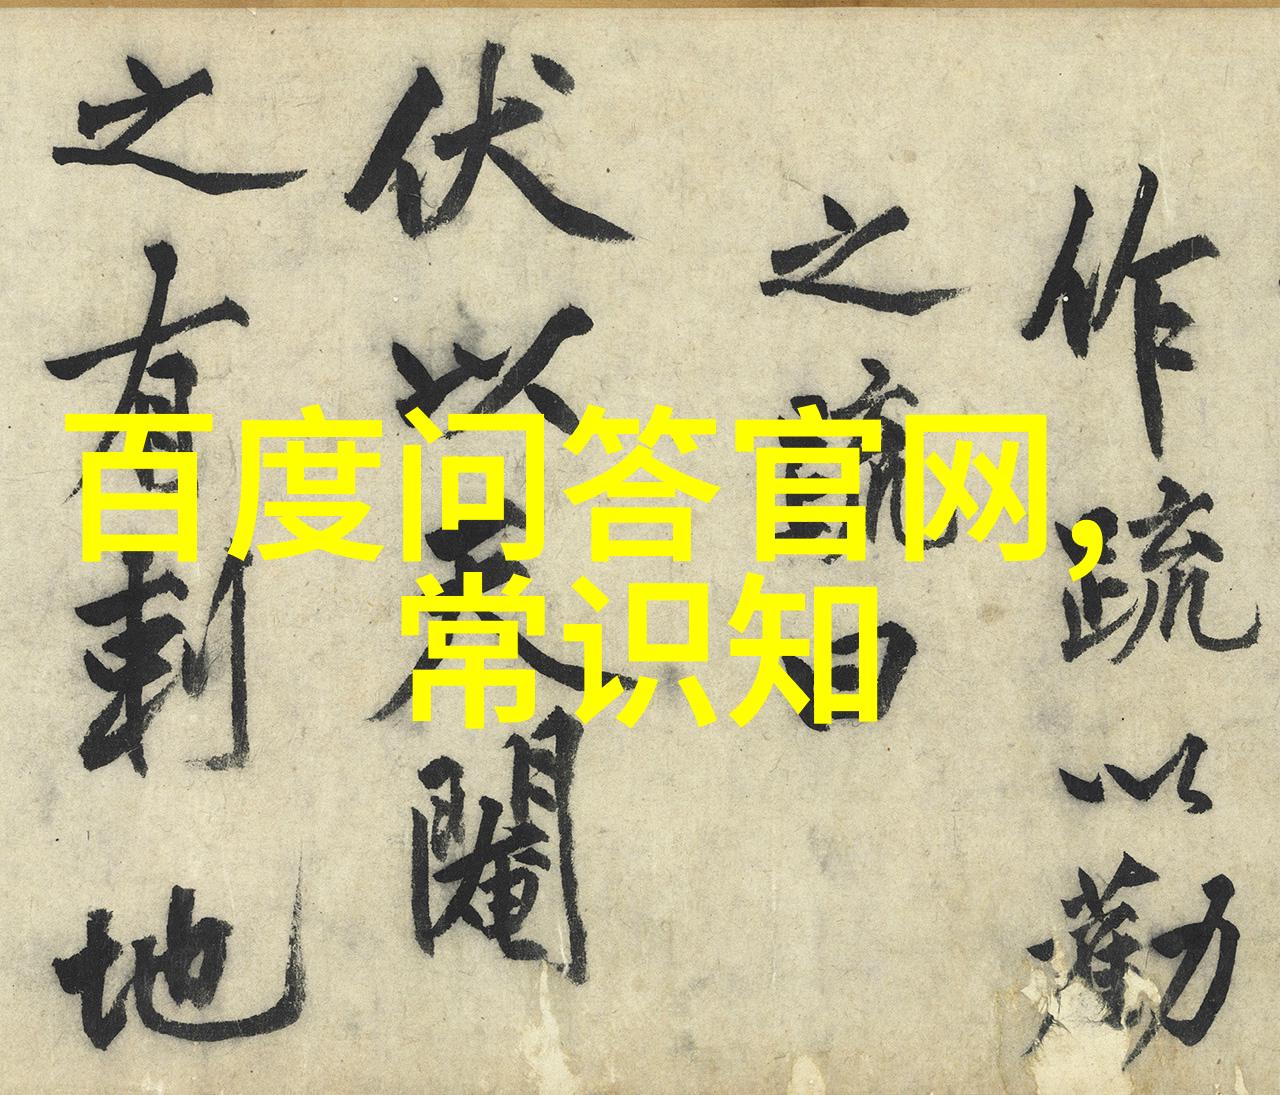 作疏以勸
之疏曰
伏以天閹
之有刺地
百度问答官网，
常识知